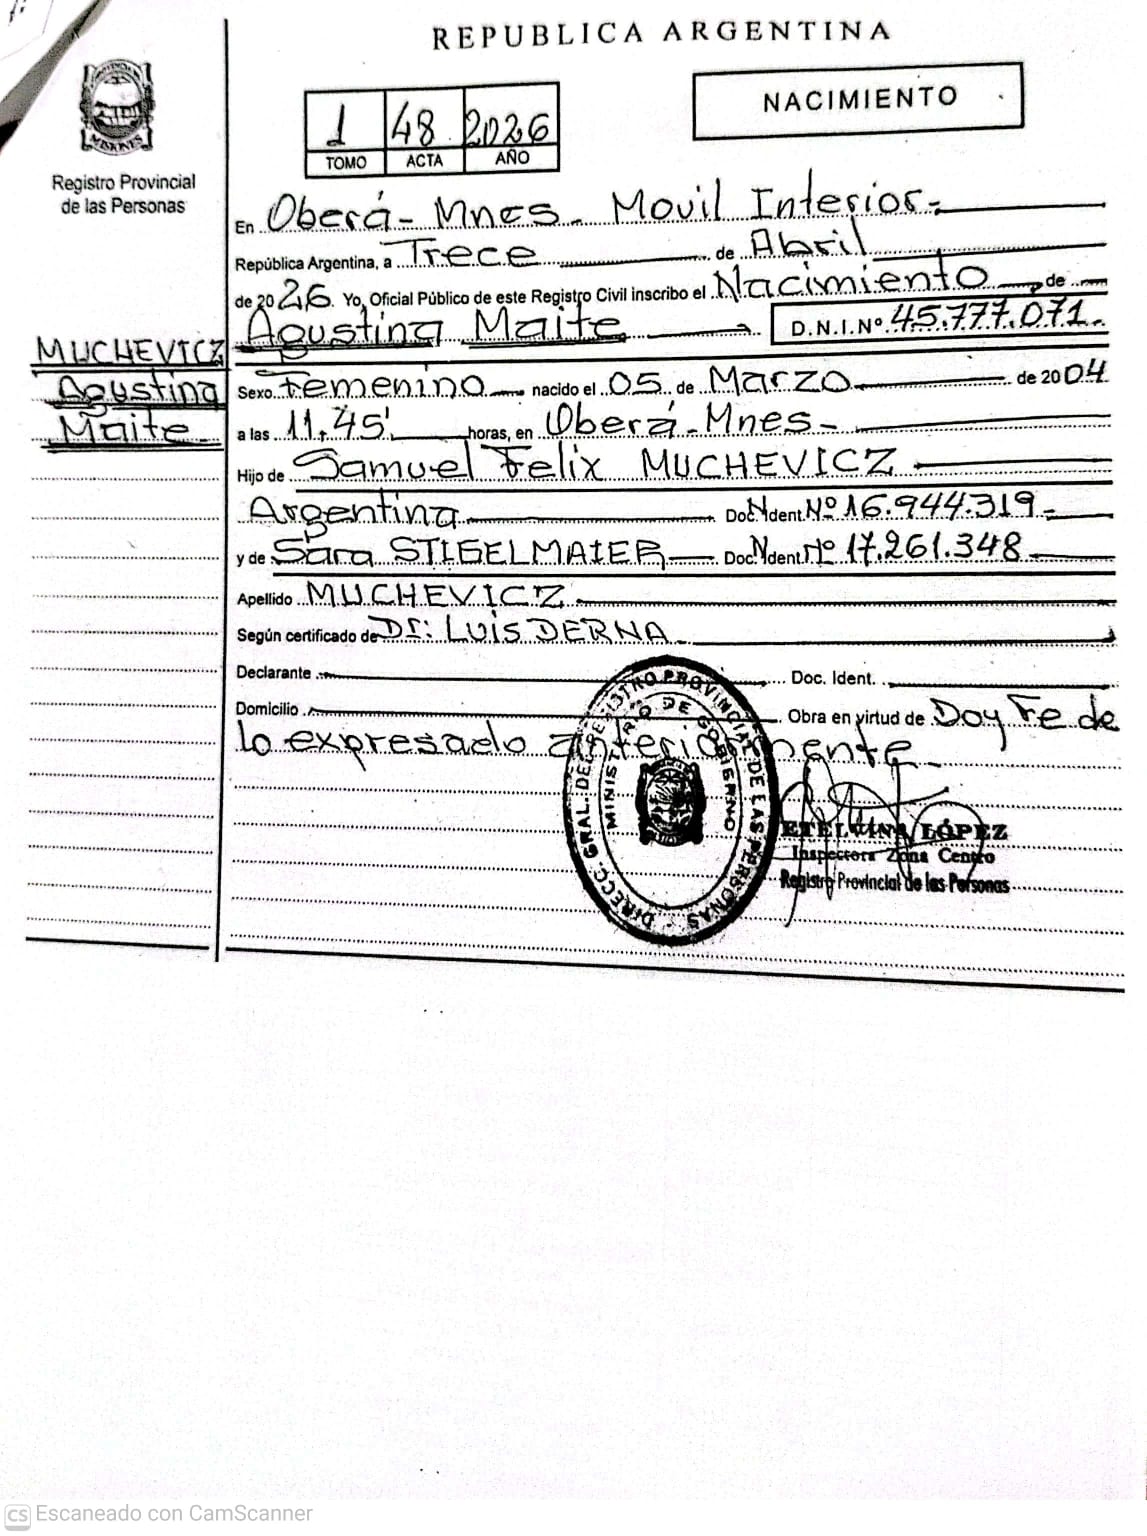 REPUBLICA ARGENTINA
PROVINCIA DE MISIONES
Registro Provincial
de las Personas
1 48 2026
TOMO ACTA AÑO
NACIMIENTO
En Oberá - Mnes - Movil Interior -
República Argentina, a Trece de Abril
de 2026. Yo, Oficial Público de este Registro Civil inscribo el Nacimiento de
Agustina Maite D.N.I.Nº 45.777.071.
MUCHEVICZ
Agustina
Maite
Sexo Femenino nacido el 05 de Marzo de 2004
a las 11,45' horas, en Oberá - Mnes -
Hijo de Samuel Felix MUCHEVICZ
Argentina Doc. Ident. Nº 16.944.319 -
y de Sara STIGELMAIER Doc. Ident. Nº 17.261.348
Apellido MUCHEVICZ
Según certificado de Dr: LUIS DERNA
Declarante Doc. Ident.
Domicilio Obra en virtud de Doy Fe de
lo expresado anteriormente
DIRECC. GRAL. DEL REGISTRO PROVINCIAL DE LAS PERSONAS
MINISTERIO DE GOBIERNO
ETELVINA LÓPEZ
Inspectora Zona Centro
Registro Provincial de las Personas
CS Escaneado con CamScanner